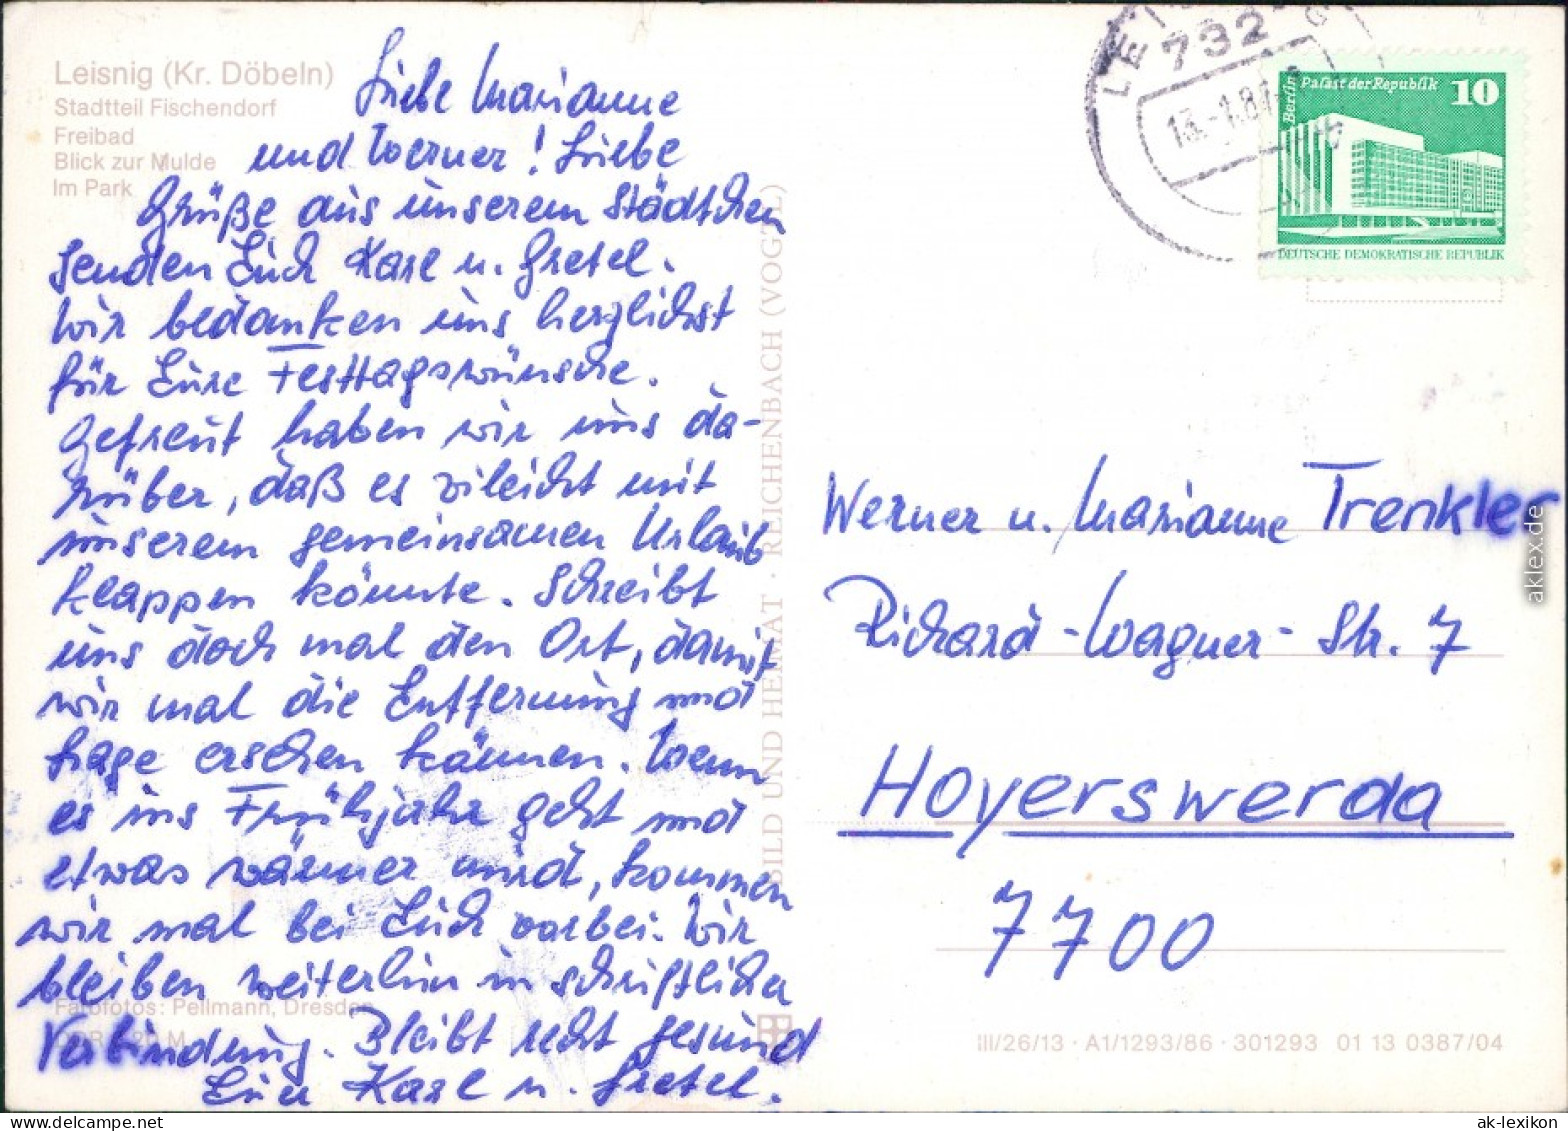 Leisnig (Kr. Döbeln)
Stadtteil Fischendorf
Freibad
Blick zur Mulde
Im Park
Liebe Marianne
und Werner! Liebe
Grüße aus unserem Städtchen
senden Euch Karl u. Gretel.
Wir bedanken uns herzlichst
für Eure Festtagswünsche.
Gefreut haben wir uns da-
rüber, daß es vileicht mit
unserem gemeinsamen Urlaub
klappen könnte. Schreibt
uns doch mal den Ort, damit
wir mal die Entfernung und
Lage ersehen können. Wenn
es ins Frühjahr geht und
etwas wärmer wird, kommen
wir mal bei Euch vorbei. Wir
bleiben weiterhin in schriftlicher
Verbindung. Bleibt recht gesund
Eure Karl u. Gretel.
Farbfotos: Pellmann, Dresden
BILD UND HEIMAT · REICHENBACH (VOGTL)
LEISNIG
732
Berlin Palast der Republik 10
DEUTSCHE DEMOKRATISCHE REPUBLIK
Werner u. Marianne Trenkler
Richard-Wagner-Str. 7
Hoyerswerda
7700
III/26/13 · A1/1293/86 · 301293 01 13 0387/04
aklex.de
ak-lexikon